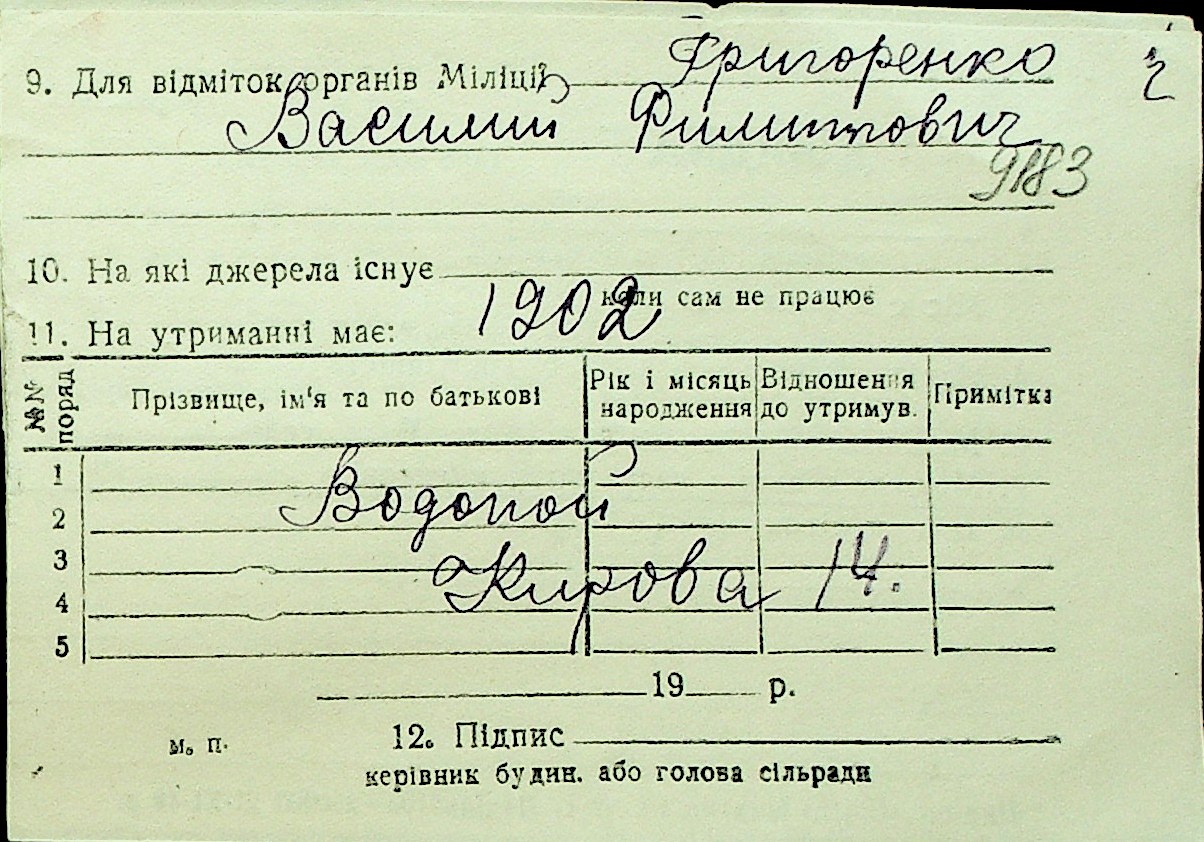 Григоренко 2
9. Для відміток органів Міліції
Василий Филиппович
9183
10. На які джерела існує
коли сам не працює
11. На утриманні має: 1902
№№ поряд Прізвище, ім'я та по батькові Рік і місяць народження Відношення до утримув. Примітка
1
2 Водопой
3
4 Кирова 14.
5
19 р.
м. п. 12. Підпис
керівник будин. або голова сільради